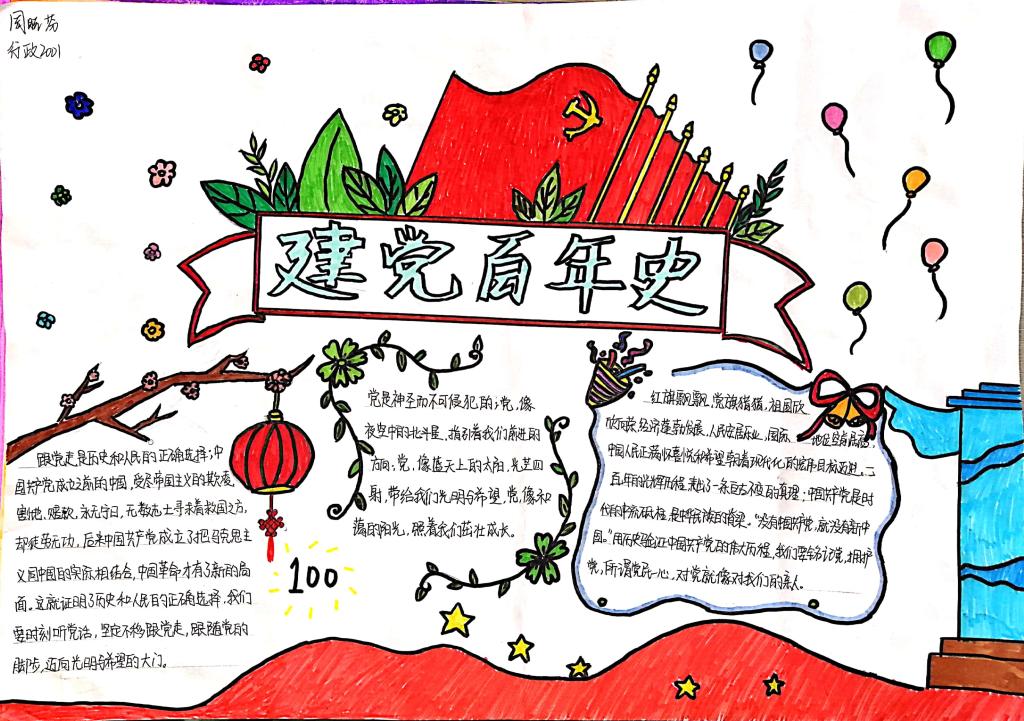 周 芳
行政2001
建党百年史
跟党走是历史和人民的正确选择;中
国共产党成立之前的中国,受尽帝国主义的欺凌,
割地、赔款,永无宁日,无数志士寻求着救国之方,
却徒劳无功,后来中国共产党成立了把马克思主
义同中国的实际相结合,中国革命才有了新的局
面。这就证明了历史和人民的正确选择,我们
要时刻听党话,坚定不移跟党走,跟随党的
脚步,迈向光明与希望的大门。
100
党是神圣而不可侵犯的;党,像
夜空中的北斗星,指引着我们前进的
方向;党,像蓝天上的太阳,光芒四
射,带给我们光明与希望,党,像和
蔼的阳光,照着我们茁壮成长。
红旗飘飘,党旗猎猎,祖国欣
欣向荣,经济蓬勃发展,人民安居乐业,国际 地位
中国人民正满怀喜悦和希望朝着现代化的宏伟目标迈进。
百年的光辉历程, 了一条亘古不变的真理:中国共产党是时
代的中流砥柱,是中华民族的脊梁。“没有中国共产党,就没有新中
国。”用历史验证中国共产党的伟大历程,我们要铭记党,拥护
党,所谓党民一心,对党就像对我们的亲人。